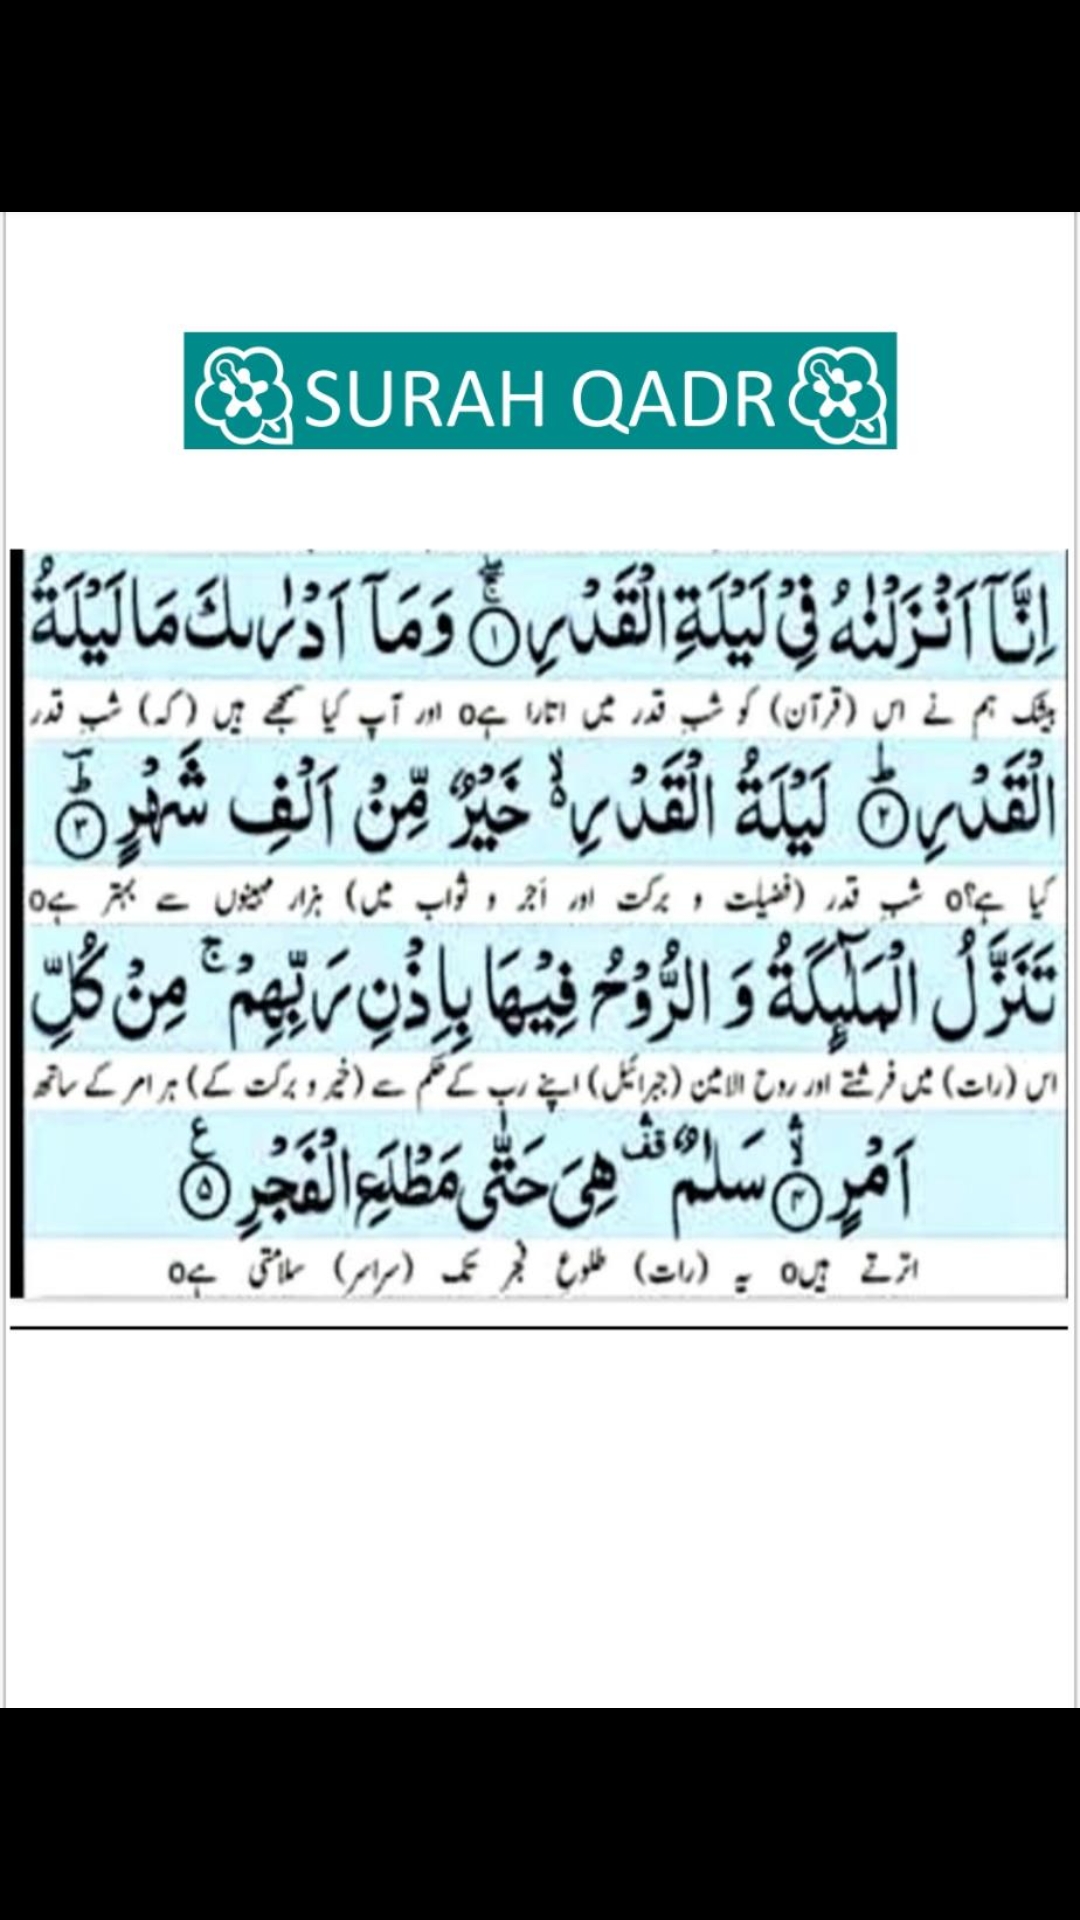 SURAH QADR
اِنَّاۤ اَنْزَلْنٰهُ فِیْ لَیْلَةِ الْقَدْرِ ۚۖ۝۱ وَمَاۤ اَدْرٰىكَ مَا لَیْلَةُ
بیشک ہم نے اس (قرآن) کو شبِ قدر میں اتارا ہےo اور آپ کیا سمجھے ہیں (کہ) شبِ قدر
الْقَدْرِ ؕ۝۲ لَیْلَةُ الْقَدْرِ ۙ۬ خَیْرٌ مِّنْ اَلْفِ شَهْرٍ ؕؔ۝۳
کیا ہے؟o شبِ قدر (فضیلت و برکت اور اَجر و ثواب میں) ہزار مہینوں سے بہتر ہےo
تَنَزَّلُ الْمَلٰٓىِٕكَةُ وَ الرُّوْحُ فِیْهَا بِاِذْنِ رَبِّهِمْ ۚ مِنْ كُلِّ
اس (رات) میں فرشتے اور روح الامین (جبرائیل) اپنے رب کے حکم سے (خیر و برکت کے) ہر امر کے ساتھ
اَمْرٍ ۙۛ۝۴ سَلٰمٌ ۛ۫ قف هِیَ حَتّٰى مَطْلَعِ الْفَجْرِ ۝۵ ع
اترتے ہیںo یہ (رات) طلوعِ فجر تک (سراسر) سلامتی ہےo